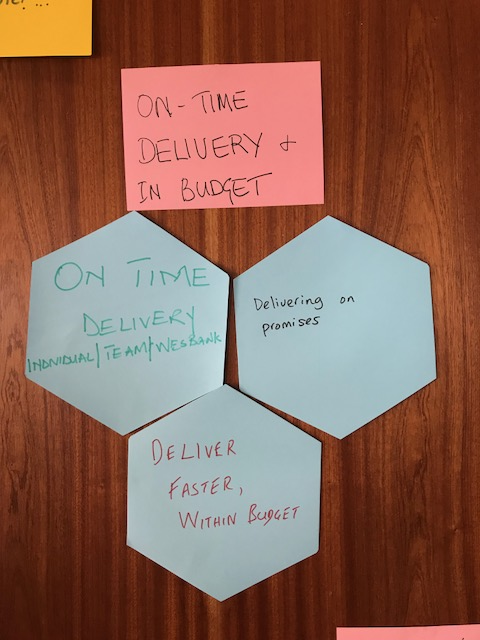 ON-TIME
DELIVERY +
IN BUDGET
ON TIME
DELIVERY
INDIVIDUAL/TEAM/WESBANK
Delivering on
promises
DELIVER
FASTER,
WITHIN BUDGET